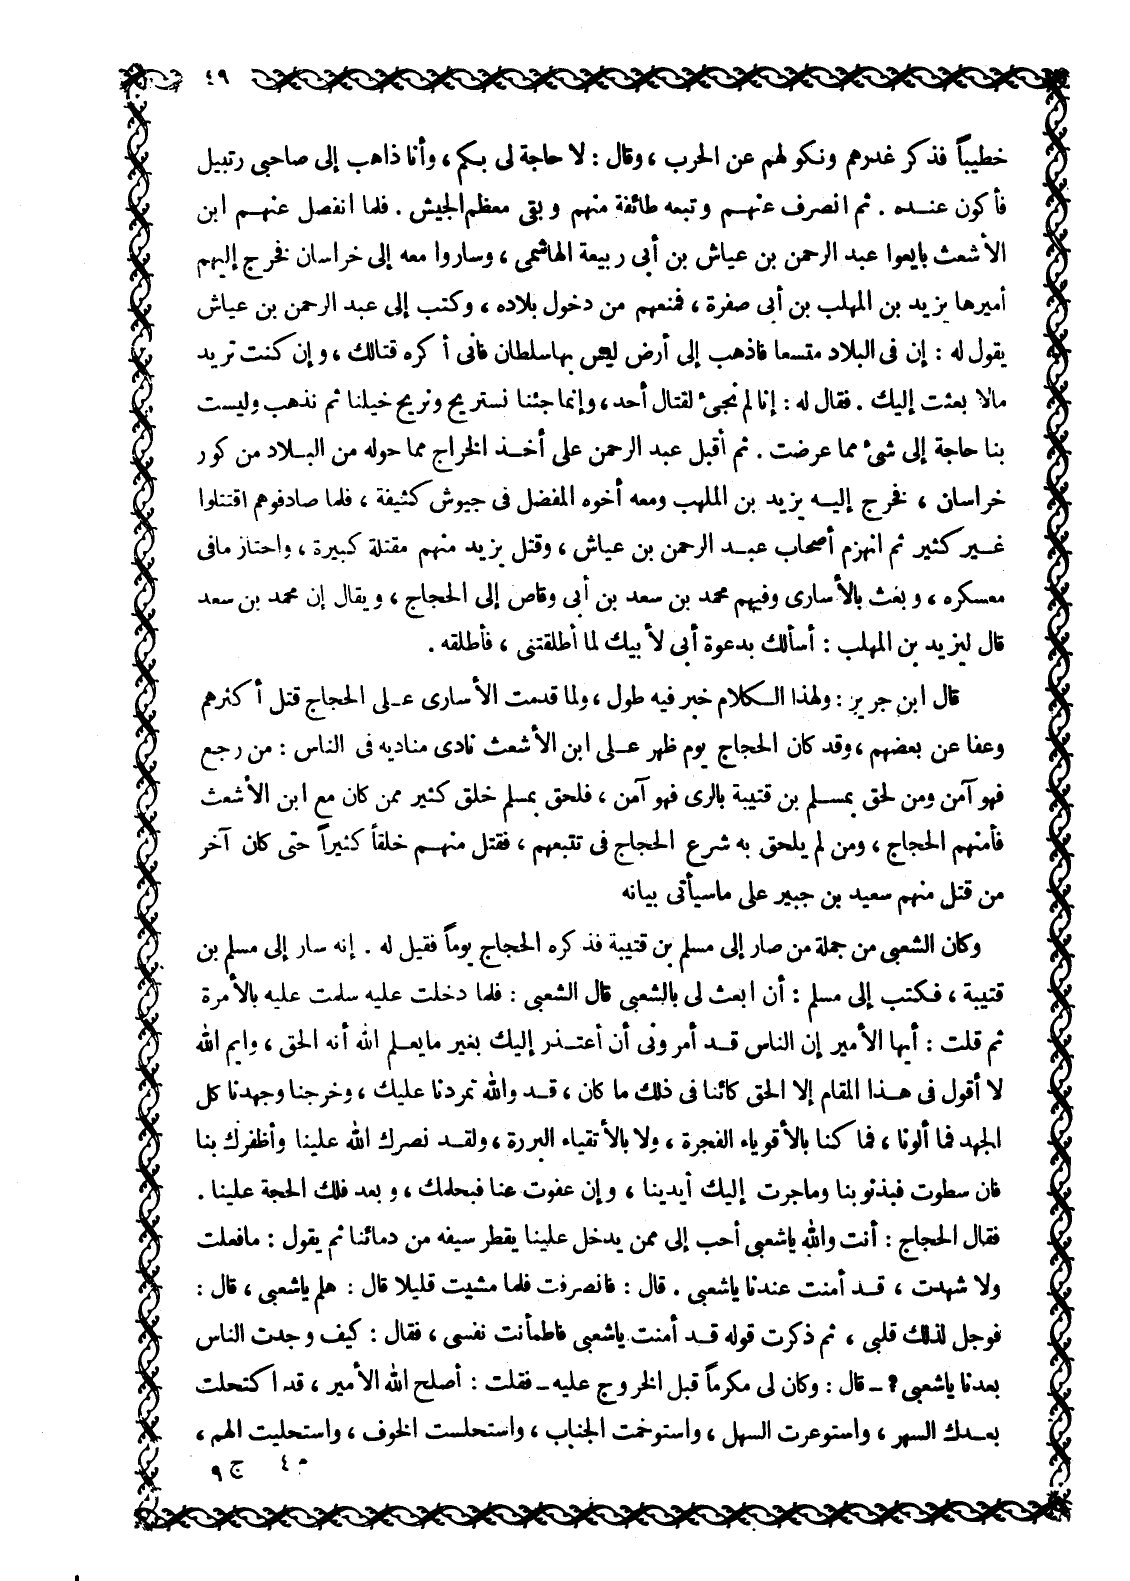 ٤٩
خطيباً فذكر غدرهم ونكولهم عن الحرب ، وقال : لا حاجة لى بكم ، وأنا ذاهب إلى صاحبى رتبيل
فأكون عنده . ثم انصرف عنهم وتبعه طائفة منهم وبقى معظم الجيش . فلما انفصل عنهم ابن
الأشعث بايعوا عبد الرحمن بن عياش بن أبى ربيعة الهاشمى ، وساروا معه إلى خراسان فخرج إليهم
أميرها يزيد بن المهلب بن أبى صفرة ، فمنعهم من دخول بلاده ، وكتب إلى عبد الرحمن بن عياش
يقول له : إن فى البلاد متسعا فاذهب إلى أرض ليس بها سلطان فانى أكره قتالك ، وإن كنت تريد
مالا بعثت إليك . فقال له : إنا لم نجىء لقتال أحد ، وإنما جئنا نستريح ونريح خيلنا ثم نذهب وليست
بنا حاجة إلى شىء مما عرضت . ثم أقبل عبد الرحمن على أخذ الخراج مما حوله من البلاد من كور
خراسان ، فخرج إليه يزيد بن الملهب ومعه أخوه المفضل فى جيوش كثيفة ، فلما صادفوهم اقتتلوا
غير كثير ثم انهزم أصحاب عبد الرحمن بن عياش ، وقتل يزيد منهم مقتلة كبيرة ، واحتاز ما فى
معسكره ، وبعث بالأسارى وفيهم محمد بن سعد بن أبى وقاص إلى الحجاج ، ويقال إن محمد بن سعد
قال ليزيد بن المهلب : أسألك بدعوة أبى لأبيك لما أطلقتنى ، فأطلقه .
قال ابن جرير : ولهذا الكلام خبر فيه طول ، ولما قدمت الأسارى على الحجاج قتل أكثرهم
وعفا عن بعضهم ، وقد كان الحجاج يوم ظهر على ابن الأشعث نادى مناديه فى الناس : من رجع
فهو آمن ومن لحق بمسلم بن قتيبة بالرى فهو آمن ، فلحق بمسلم خلق كثير ممن كان مع ابن الأشعث
فأمنهم الحجاج ، ومن لم يلحق به شرع الحجاج فى تتبعهم ، فقتل منهم خلقاً كثيراً حتى كان آخر
من قتل منهم سعيد بن جبير على ما سيأتى بيانه
وكان الشعبى من جملة من صار إلى مسلم بن قتيبة فذكره الحجاج يوماً فقيل له . إنه سار إلى مسلم بن
قتيبة ، فكتب إلى مسلم : أن ابعث لى بالشعبى قال الشعبى : فلما دخلت عليه سلمت عليه بالأمرة
ثم قلت : أيها الأمير إن الناس قد أمرونى أن أعتذر إليك بغير ما يعلم الله أنه الحق ، وايم الله
لا أقول فى هذا المقام إلا الحق كائنا فى ذلك ما كان ، قد والله تمردنا عليك ، وخرجنا وجهدنا كل
الجهد فما ألونا ، فما كنا بالأقوياء الفجرة ، ولا بالأتقياء البررة ، ولقد نصرك الله علينا وأظفرك بنا
فان سطوت فبذنوبنا وماجرت إليك أيدينا ، وإن عفوت عنا فبحلمك ، وبعد فلك الحجة علينا .
فقال الحجاج : أنت والله ياشعبى أحب إلى ممن يدخل علينا يقطر سيفه من دمائنا ثم يقول : مافعلت
ولا شهدت ، قد أمنت عندنا ياشعبى . قال : فانصرفت فلما مشيت قليلا قال : هلم ياشعبى ، قال :
فوجل لذلك قلبى ، ثم ذكرت قوله قد أمنت ياشعبى فاطمأنت نفسى ، فقال : كيف وجدت الناس
بعدنا ياشعبى ؟ ـ قال : وكان لى مكرماً قبل الخروج عليه ـ فقلت : أصلح الله الأمير ، قد اكتحلت
بعدك السهر ، واستوعرت السهل ، واستوخمت الجناب ، واستحلست الخوف ، واستحليت الهم ،
م ٤ ج ٩